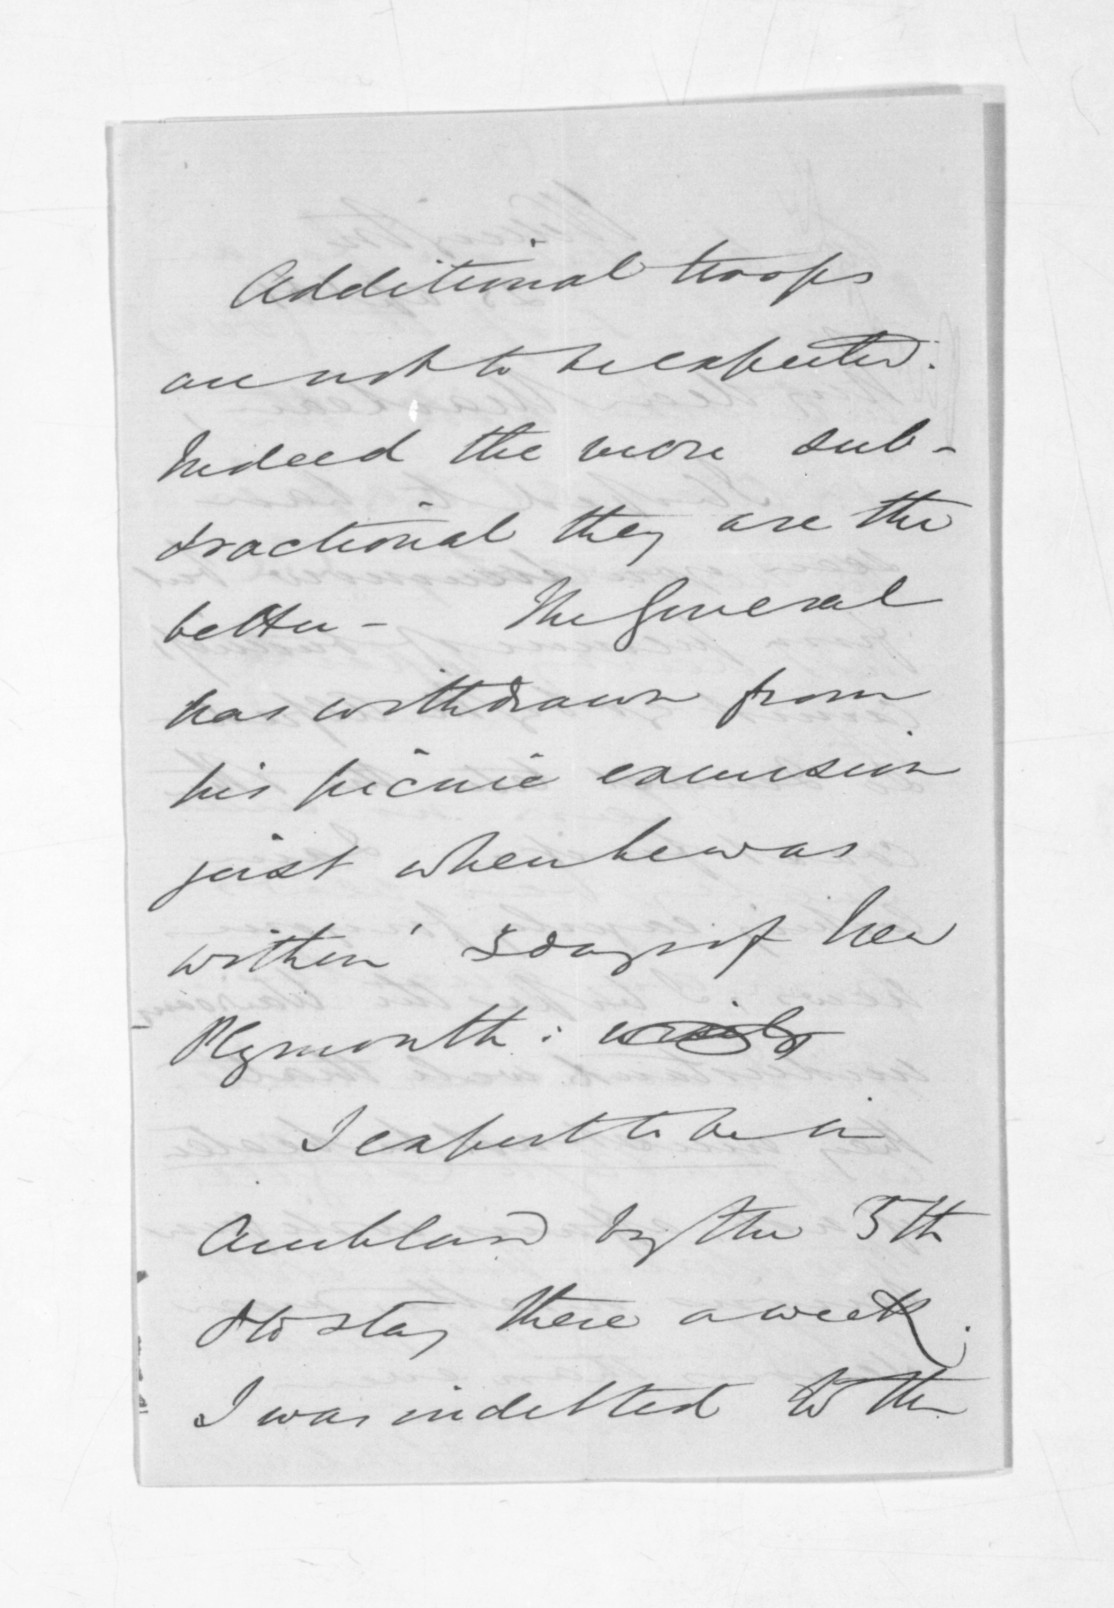 Additional troops
are not to be expected.
Indeed the more sub-
tractional they are the
better - The General
has withdrawn from
his picnic excursion
just when he was
within 3 days of New
Plymouth:
I expect to be in
Auckland by the 5th
& to stay there a week.
I was indebted to the